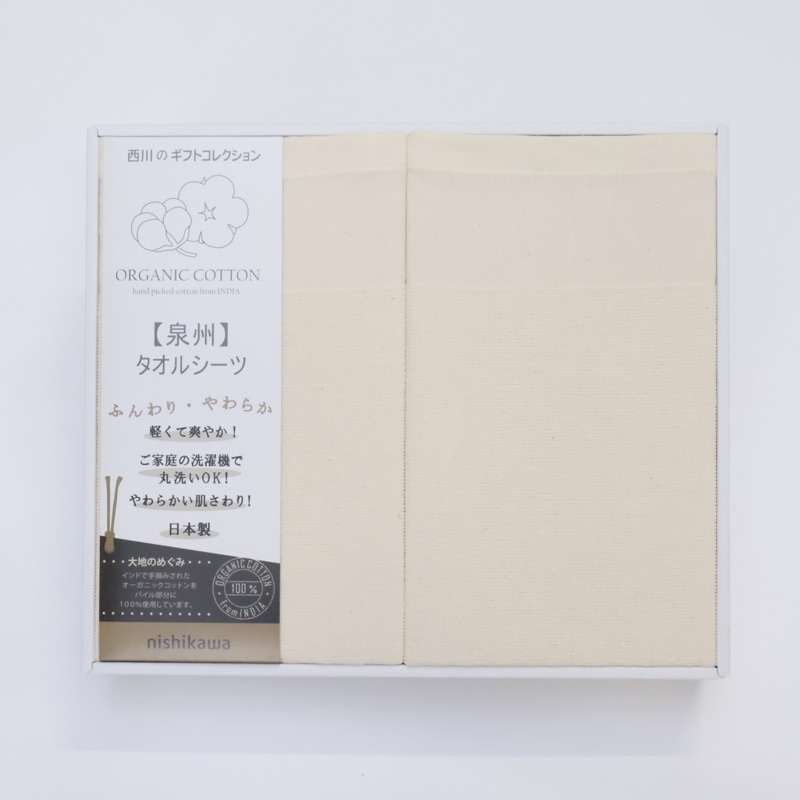 西川のギフトコレクション
ORGANIC COTTON
hand picked cotton from INDIA
【泉州】
タオルシーツ
ふんわり・やわらか
軽くて爽やか!
ご家庭の洗濯機で
丸洗いOK!
やわらかい肌さわり!
日本製
大地のめぐみ
インドで手摘みされた
オーガニックコットンを
パイル部分に
100%使用しています。
ORGANIC COTTON
100%
from INDIA
nishikawa